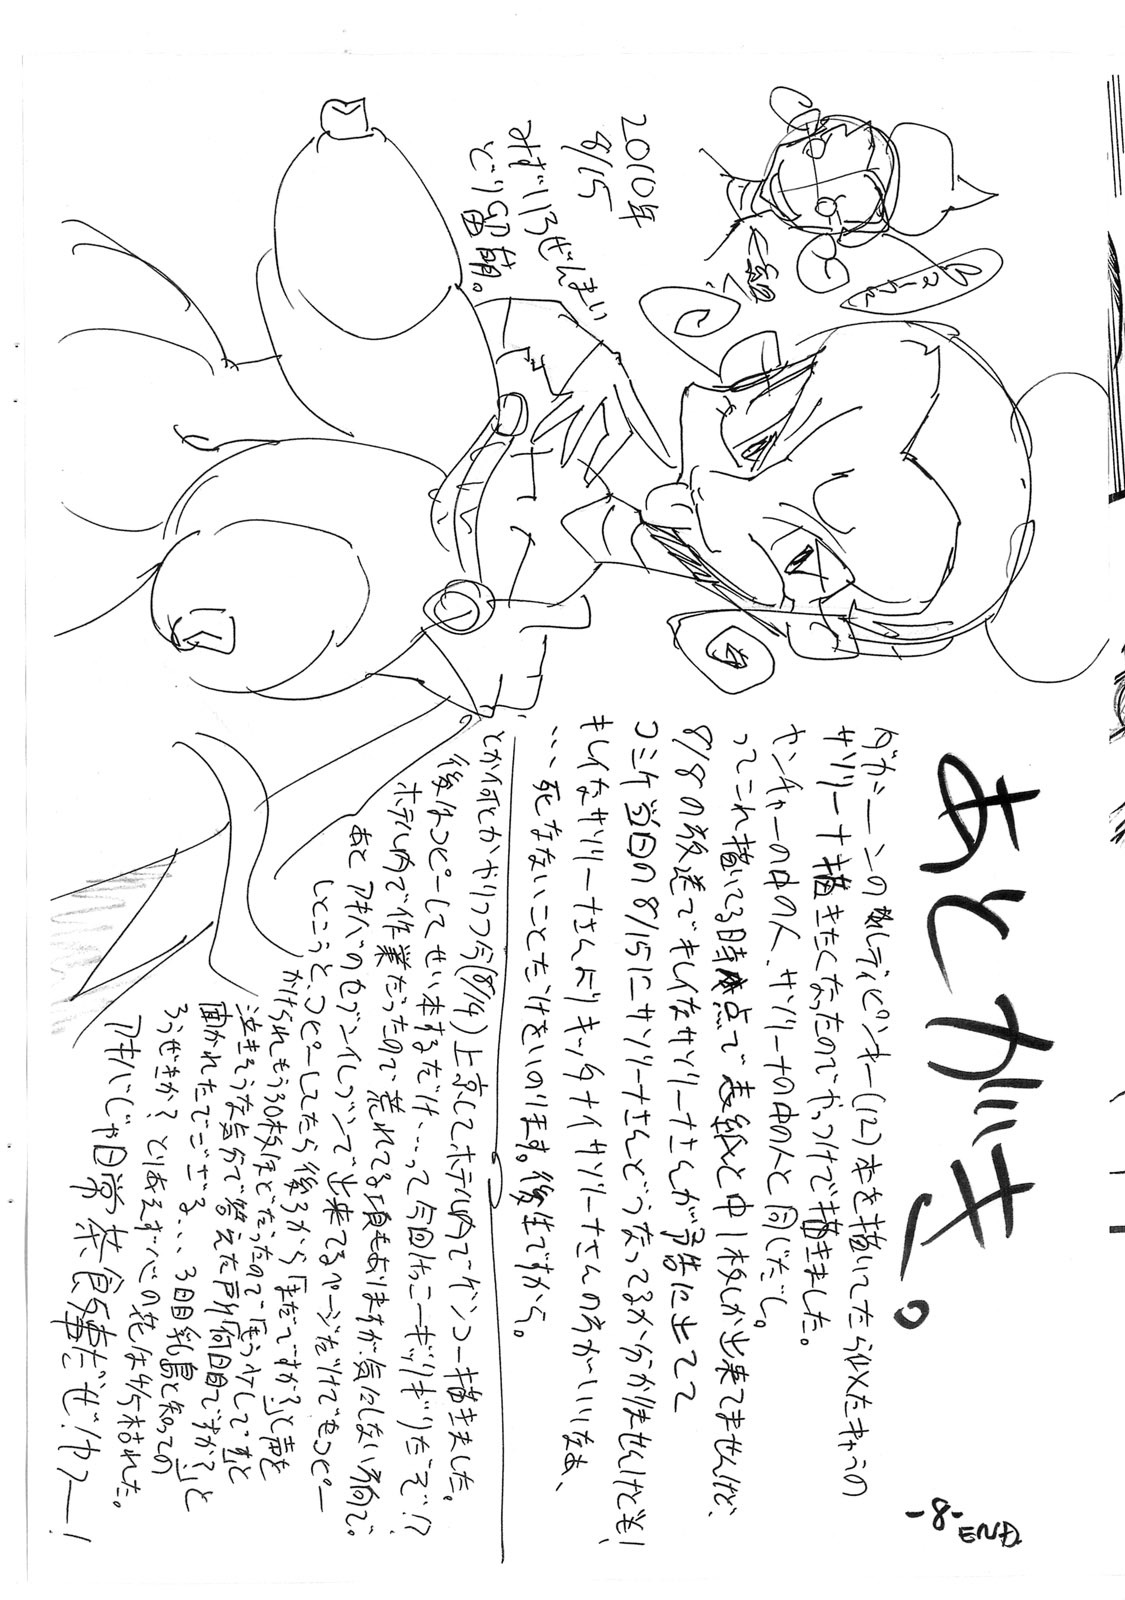 あとがき。
の レディピンキー(12)本を描いてたら似たキャラの
サソリーナ描きたくなったのでやっつけで描きました。
の中の人、サソリーナの中の人と同じだし。
ってこれ描いてる時点で表紙と中1枚しか出来てませんけど、
8/8の放送でキレイなサソリーナさんが予告に出てて
コミケ当日の8/15にサソリーナさんどうなってるか分かりませんけども!
キレイなサソリーナさんよりキッタナイサソリーナさんの方がいいなぁ、
…死なないことだけをいのります。後生ですから。
とか何とかやりつつ今(8/14)上京してホテル内でゲンコー描きました。
後はコピーしてせい本するだけ…って今回けっこーギッリギリだぞ!?
ホテル内で作業だったので荒れてる もありますが気にしない方向で。
あとアキバのセブンイレブンで出来てるページだけでもコピー
しとこうと、コピーしてたら後ろから「まだですか?」と声を
かけられもう30枚ほどだったので「もう少しです」と
泣きそうな気分で答えた所「何日目ですか?」と
聞かれたでござる、、、3日目 と知っての
ろうぜきか? とりあえず心の花は 枯れた。
アキバじゃ日常茶飯事だぜ!
2010年
8/15
みずいろぜんまい
どり留萌。
-8-
END.